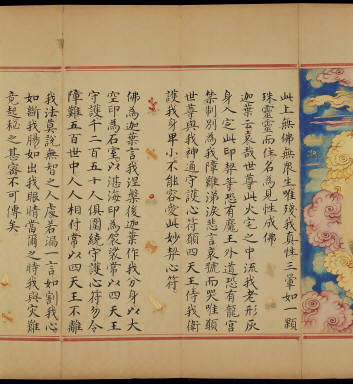 此上無佛無衆生唯殘我真性三如一顆
珠靈靈而住名為見性成佛
迦葉云哀哉世尊火定之中流我老形灰
身入定此印契等恐有魔王外道恐有龍宮
禁制別為我障難涕淚悲言哀號而哭唯願
世尊與我神通守護心符願四天王侍我衛
護我身卑小不能容受此妙契心符
佛為迦葉言我涅槃後迦葉作我分身以大
空印為石室以湛海印為袈裟常以四天王
守護千二百五十人俱圍繞守護心符勿令
障難五百世中人人相付常以四天王不離
我法莫說無智之人處若漏一言如割我心
如斷我腸如出我眼睛當爾之時我與灾難
竟起秘之甚密不可傳矣